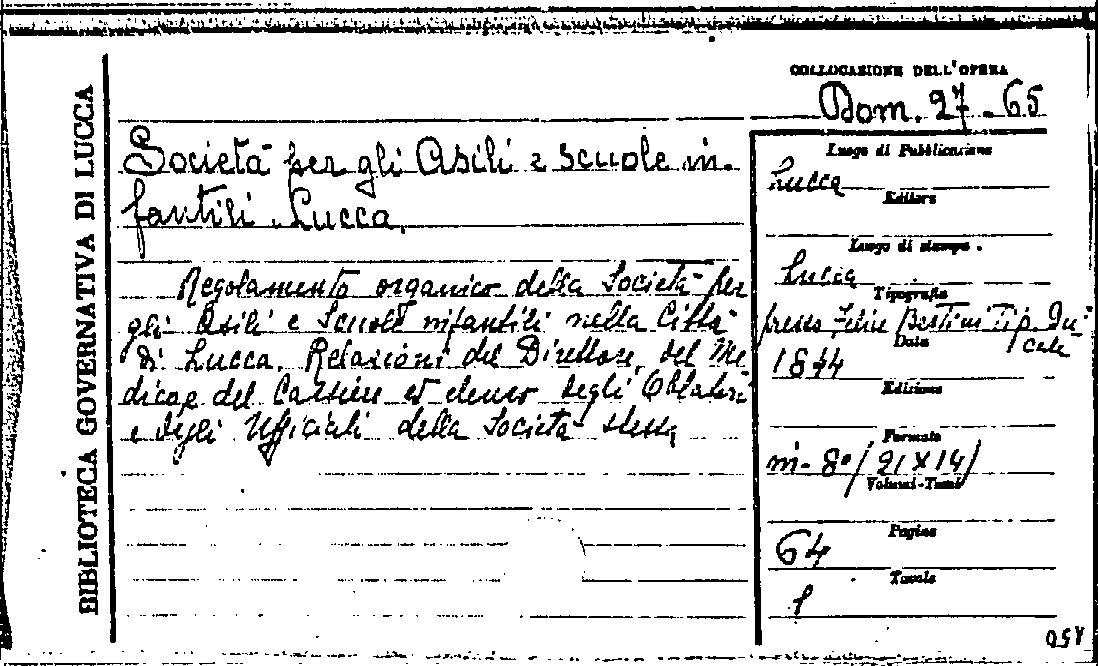 BIBLIOTECA GOVERNATIVA DI LUCCA
COLLOCAZIONE DELL'OPERA
Dom. 27-65
Società per gli Asili e scuole in-
fantili. Lucca.
Regolamento organico della Società per
gli Asili e Scuole infantili nella Città
di Lucca. Relazioni del Direttore, del Me
dico e del Cassiere ed elenco degli Oblatori
e degli Ufficiali della Società stessa
Luogo di Pubblicazione
Lucca
Editore
Luogo di stampa.
Lucca
Tipografia
presso Felice Bertini Tip. Du
cale
Data
1844
Edizione
Formato
in-8°/21X14/
Volumi-Tomi
Pagine
64
Tavole
1